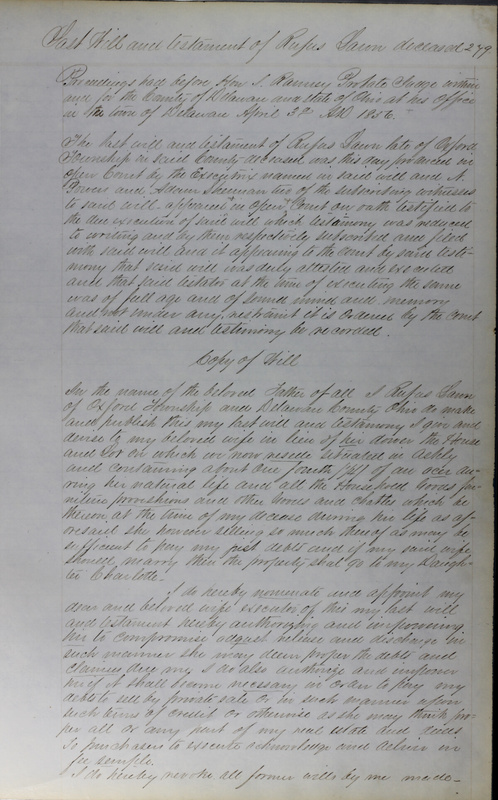 Last Will and testament of Rufus Sawn deceased 279
Proceedings had before Hon. T. Ramsey Probate Judge within
and for the County of Delaware and state of Ohio at his office
in the town of Delaware April 3d AD 1856.
The last will and testament of Rufus Sawn late of Oxford
Township in said County deceased was this day produced in
open Court by the Executrix named in said will and A.
and Adam Sherman two of the subscribing witnesses
to said will appeared in open Court on oath testified to
the due execution of said will which testimony was reduced
to writing and by them respectively subscribed and filed
with said will and it appearing to the Court by said testi-
mony that said will was duly attested and executed
and that said testator at the time of executing the same
was of full age and of sound mind and memory
and not under any restraint it is ordered by the Court
that said will and testimony be recorded.
Copy of Will
In the name of the beloved Father of all I Rufus Sawn
of Oxford Township and Delaware County Ohio do make
and publish this my last will and testimony I give and
devise to my beloved wife in lieu of her dower the House
and Lot on which we now reside situated in Ashly
and containing about One fourth (1/4) of an acer du-
ring her natural life and all the Household Goods fur-
niture provistions and other Goods and chattle which be
thereon at the time of my decease during her life as af-
oresaid she however selling so much thereof as may be
sufficient to pay my just debts and if my said wife
should marry then the property shal go to my Daugh-
ter Charlotte.
I do hereby nominate and appoint my
dear and beloved wife executor of this my last will
and testament hereby authorizing and impowering
her to compromise adjust release and discharge in
such manner she may deem proper the debts and
claimes due my I do also authorize and impower
her if it shall become necessary in order to pay my
debts to sell by private sale or in such manner upon
such terms of credit or otherwise as she may think pro-
per all or any part of my real estate and deeds
To purchasers to execute acknowledge and deliver in
fee semple.
I do hereby revoke all former wills by me made.